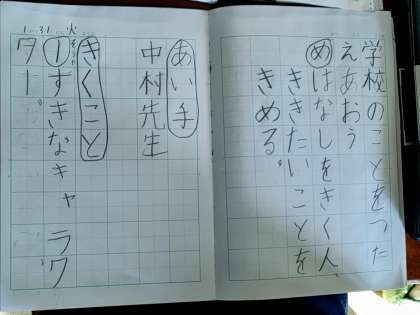 学校のことをつた
えあおう
めはなしをきく人、
ききたいことを
きめる。
1.31 火
あい手
中村先生
きくこと
①すきなキャラク
ター